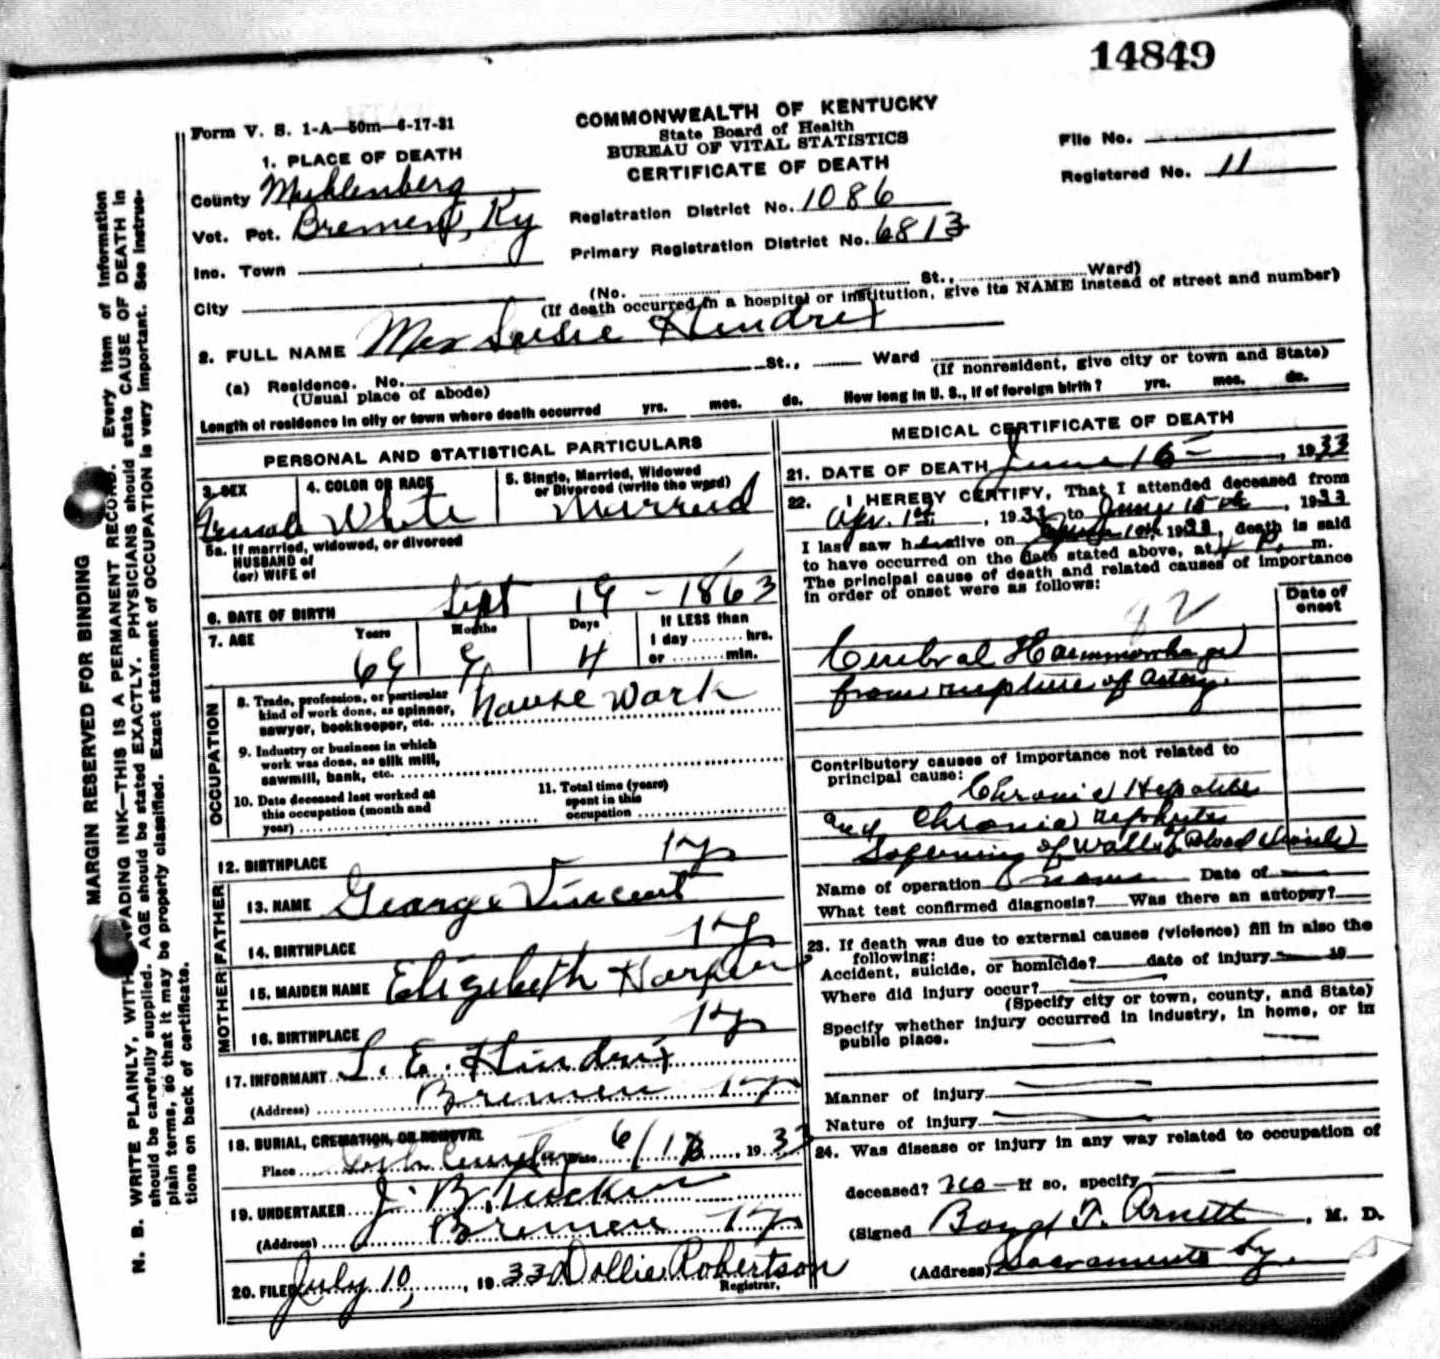 14849
Form V. S. 1-A—50m—6-17-31
COMMONWEALTH OF KENTUCKY
State Board of Health
BUREAU OF VITAL STATISTICS
CERTIFICATE OF DEATH
File No.
Registered No. 11
1. PLACE OF DEATH
County Muhlenberg
Vot. Pct. Bremen, Ky
Inc. Town
City
Registration District No. 1086
Primary Registration District No. 6813
(No. St., Ward)
(If death occurred in a hospital or institution, give its NAME instead of street and number)
2. FULL NAME Mrs Susie Hendrix
(a) Residence. No. St., Ward (If nonresident, give city or town and State)
(Usual place of abode)
Length of residence in city or town where death occurred yrs. mos. ds. How long in U. S., if of foreign birth? yrs. mos. ds.
PERSONAL AND STATISTICAL PARTICULARS
3. SEX
4. COLOR OR RACE White
5. Single, Married, Widowed
or Divorced (write the word)
Married
5a. If married, widowed, or divorced
HUSBAND of
(or) WIFE of
6. DATE OF BIRTH Sept 19 - 1863
7. AGE Years Months Days If LESS than
1 day ........ hrs.
or ........ min.
69 4
OCCUPATION
8. Trade, profession, or particular
kind of work done, as spinner,
sawyer, bookkeeper, etc. House Work
9. Industry or business in which
work was done, as silk mill,
sawmill, bank, etc.
10. Date deceased last worked at
this occupation (month and
year)
11. Total time (years)
spent in this
occupation
12. BIRTHPLACE Ky
FATHER
13. NAME George Vincent
14. BIRTHPLACE Ky
MOTHER
15. MAIDEN NAME Elizebeth Harper
16. BIRTHPLACE Ky
17. INFORMANT L. E. Hindrix
(Address) Bremen Ky
18. BURIAL, CREMATION, OR REMOVAL
Place Date 6/ 1933
19. UNDERTAKER J. B. Tucker
(Address) Bremen Ky
20. FILED July 10, 1933 Dollie Robertson
Registrar.
MEDICAL CERTIFICATE OF DEATH
21. DATE OF DEATH June 1933
22. I HEREBY CERTIFY, That I attended deceased from
Apr. 1st, 1933 to June 15th, 1933
I last saw h alive on 1933, death is said
to have occurred on the date stated above, at 4 P. m.
The principal cause of death and related causes of importance
in order of onset were as follows:
Date of
onset
82
Cerebral Haemmorhage
from rupture of Artery.
Contributory causes of importance not related to
principal cause:
Chronic Hepatites
and Chronic nephrites
Sofenning of walls of Blood
Name of operation none Date of
What test confirmed diagnosis? Was there an autopsy?
23. If death was due to external causes (violence) fill in also the
following:
Accident, suicide, or homicide? date of injury 19
Where did injury occur?
(Specify city or town, county, and State)
Specify whether injury occurred in industry, in home, or in
public place.
Manner of injury
Nature of injury
24. Was disease or injury in any way related to occupation of
deceased? No If so, specify
(Signed Boyd T. Arnett, M. D.
(Address) Sacramento Ky.
MARGIN RESERVED FOR BINDING
N. B. WRITE PLAINLY, WITH UNFADING INK—THIS IS A PERMANENT RECORD. Every item of information
should be carefully supplied. AGE should be stated EXACTLY. PHYSICIANS should state CAUSE OF DEATH in
plain terms, so that it may be properly classified. Exact statement of OCCUPATION is very important. See instruc-
tions on back of certificate.